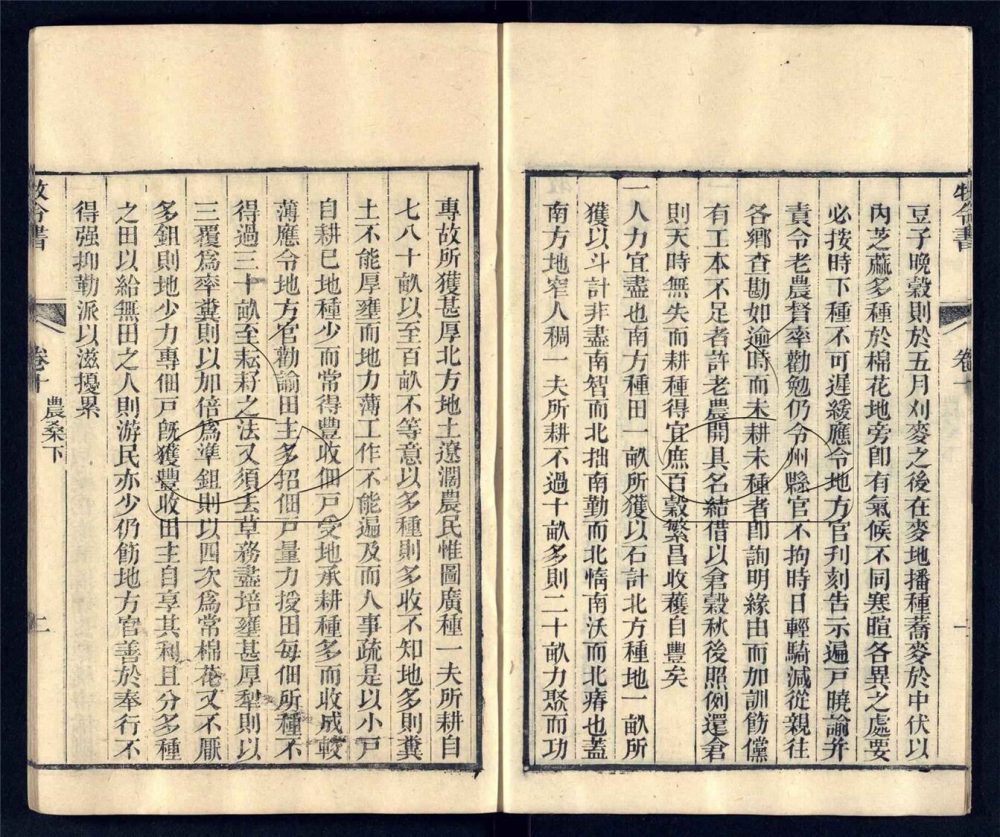 牧令書
卷十
一
豆子晚穀則於五月刈麥之後在麥地播種蕎麥於中伏以
內芝蔴多種於棉花地旁卽有氣候不同寒暄各異之處要
必按時下種不可遲緩應令地方官刋刻告示遍戸曉諭并
責令老農督率勸勉仍令州縣官不拘時日輕騎減從親往
各鄉查勘如逾時而未耕未種者卽詢明緣由而加訓飭儻
有工本不足者許老農開具名結借以倉穀秋後照例還倉
則天時無失而耕種得宜庶百穀繁昌收穫自豐矣
一人力宜盡也南方種田一畝所獲以石計北方種地一畝所
獲以斗計非盡南智而北拙南勤而北惰南沃而北瘠也蓋
南方地窄人稠一夫所耕不過十畝多則二十畝力聚而功
專故所獲甚厚北方地土遼濶農民惟圖廣種一夫所耕自
七八十畝以至百畝不等意以多種則多收不知地多則糞
土不能厚壅而地力薄工作不能遍及而人事疏是以小戸
自耕已地種少而常得豐收佃戸受地承耕種多而收成較
薄應令地方官勸諭田主多招佃戸量力授田每佃所種不
得過三十畝至耘耔之法又須去草務盡培壅甚厚犁則以
三覆爲率糞則以加倍爲準鉏則以四次爲常棉花又不厭
多鉏則地少力專佃戸旣獲豐收田主自享其利且分多種
之田以給無田之人則游民亦少仍飭地方官善於奉行不
得强抑勒派以滋擾累
牧令書
卷十
農桑下
二